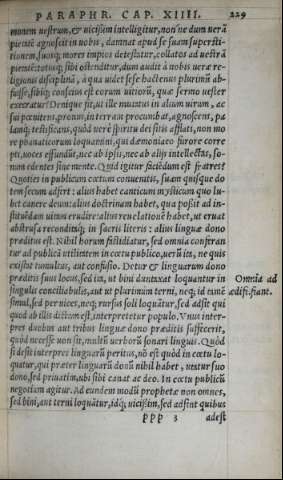 PARAPHR. CAP. XIIII. 229
monem uestrum, & uicissim intelligitur, non'ne dum uerã
pietatẽ agnoscit in uobis, damnat apud se suam superstitionem,
suosq; mores impios detestatur, collatos ad uestrã
pietatẽ castitatẽq; sibi ostenditur, dum audit à uobis ueræ religionis
disciplinã, à qua uidet sese hactenus plurimũ abfuisse,
sibiq; conscius est eorum uitiorũ, quæ sermo uester
execratur? Deniq; fit, ut ille mutatus in alium uirum, ac
sui pœnitens, pronus in terram procumbat, agnoscens, palamq;
testificans, quòd uerè spiritu dei sitis afflati, non more
phanaticorum loquamini, qui dæmoniaco furore correpti,
uoces effundũt, nec ab ipsis, nec ab alijs intellectas, somnum
edentes sine mente. Quid igitur faciẽdum est fratres?
Quoties in publicum cœtum conuenitis, suam quisq; dotem
secum adfert: alius habet canticum mysticum quo lubet
canere deum: alius doctrinam habet, qua possit ad instituẽdam
uitam erudire: alius reuelationẽ habet, ut eruat
abstrusa reconditiq; in sacris literis: alius linguæ dono
præditus est. Nihil horum fastidiatur, sed omnia conferantur
ad publicã utilitatem in cœtu publico, uerũ ita, ne quis
existat tumultus, aut confusio. Detur & linguarum dono
præditis suus locus, sed ita, ut bini duntaxat loquantur in
singulis conciliabulis, aut ut plurimùm terni, neq; id tunc
simul, sed per uices, neq; rursus soli loquãtur, sed adsit qui
quod ab illis dictum est, interpretetur populo. Vnus interpres
duobus aut tribus linguæ dono præditis suffecerit,
quòd necesse non sit, multũ uerborũ sonari linguis. Quòd
si desit interpres linguarũ peritus, nõ est quòd in cœtu loquatur,
qui præter linguarũ donũ nihil habet, utatur suo
dono, sed priuatim, ubi sibi canat ac deo. In cœtu publicũ
negotium agitur. Ad eundem modũ prophetæ non omnes,
sed bini, aut terni loquãtur, idq; uicissim, sed adsint quibus
PPP 3 adest
Omniæ ad
ædifi. fiant.